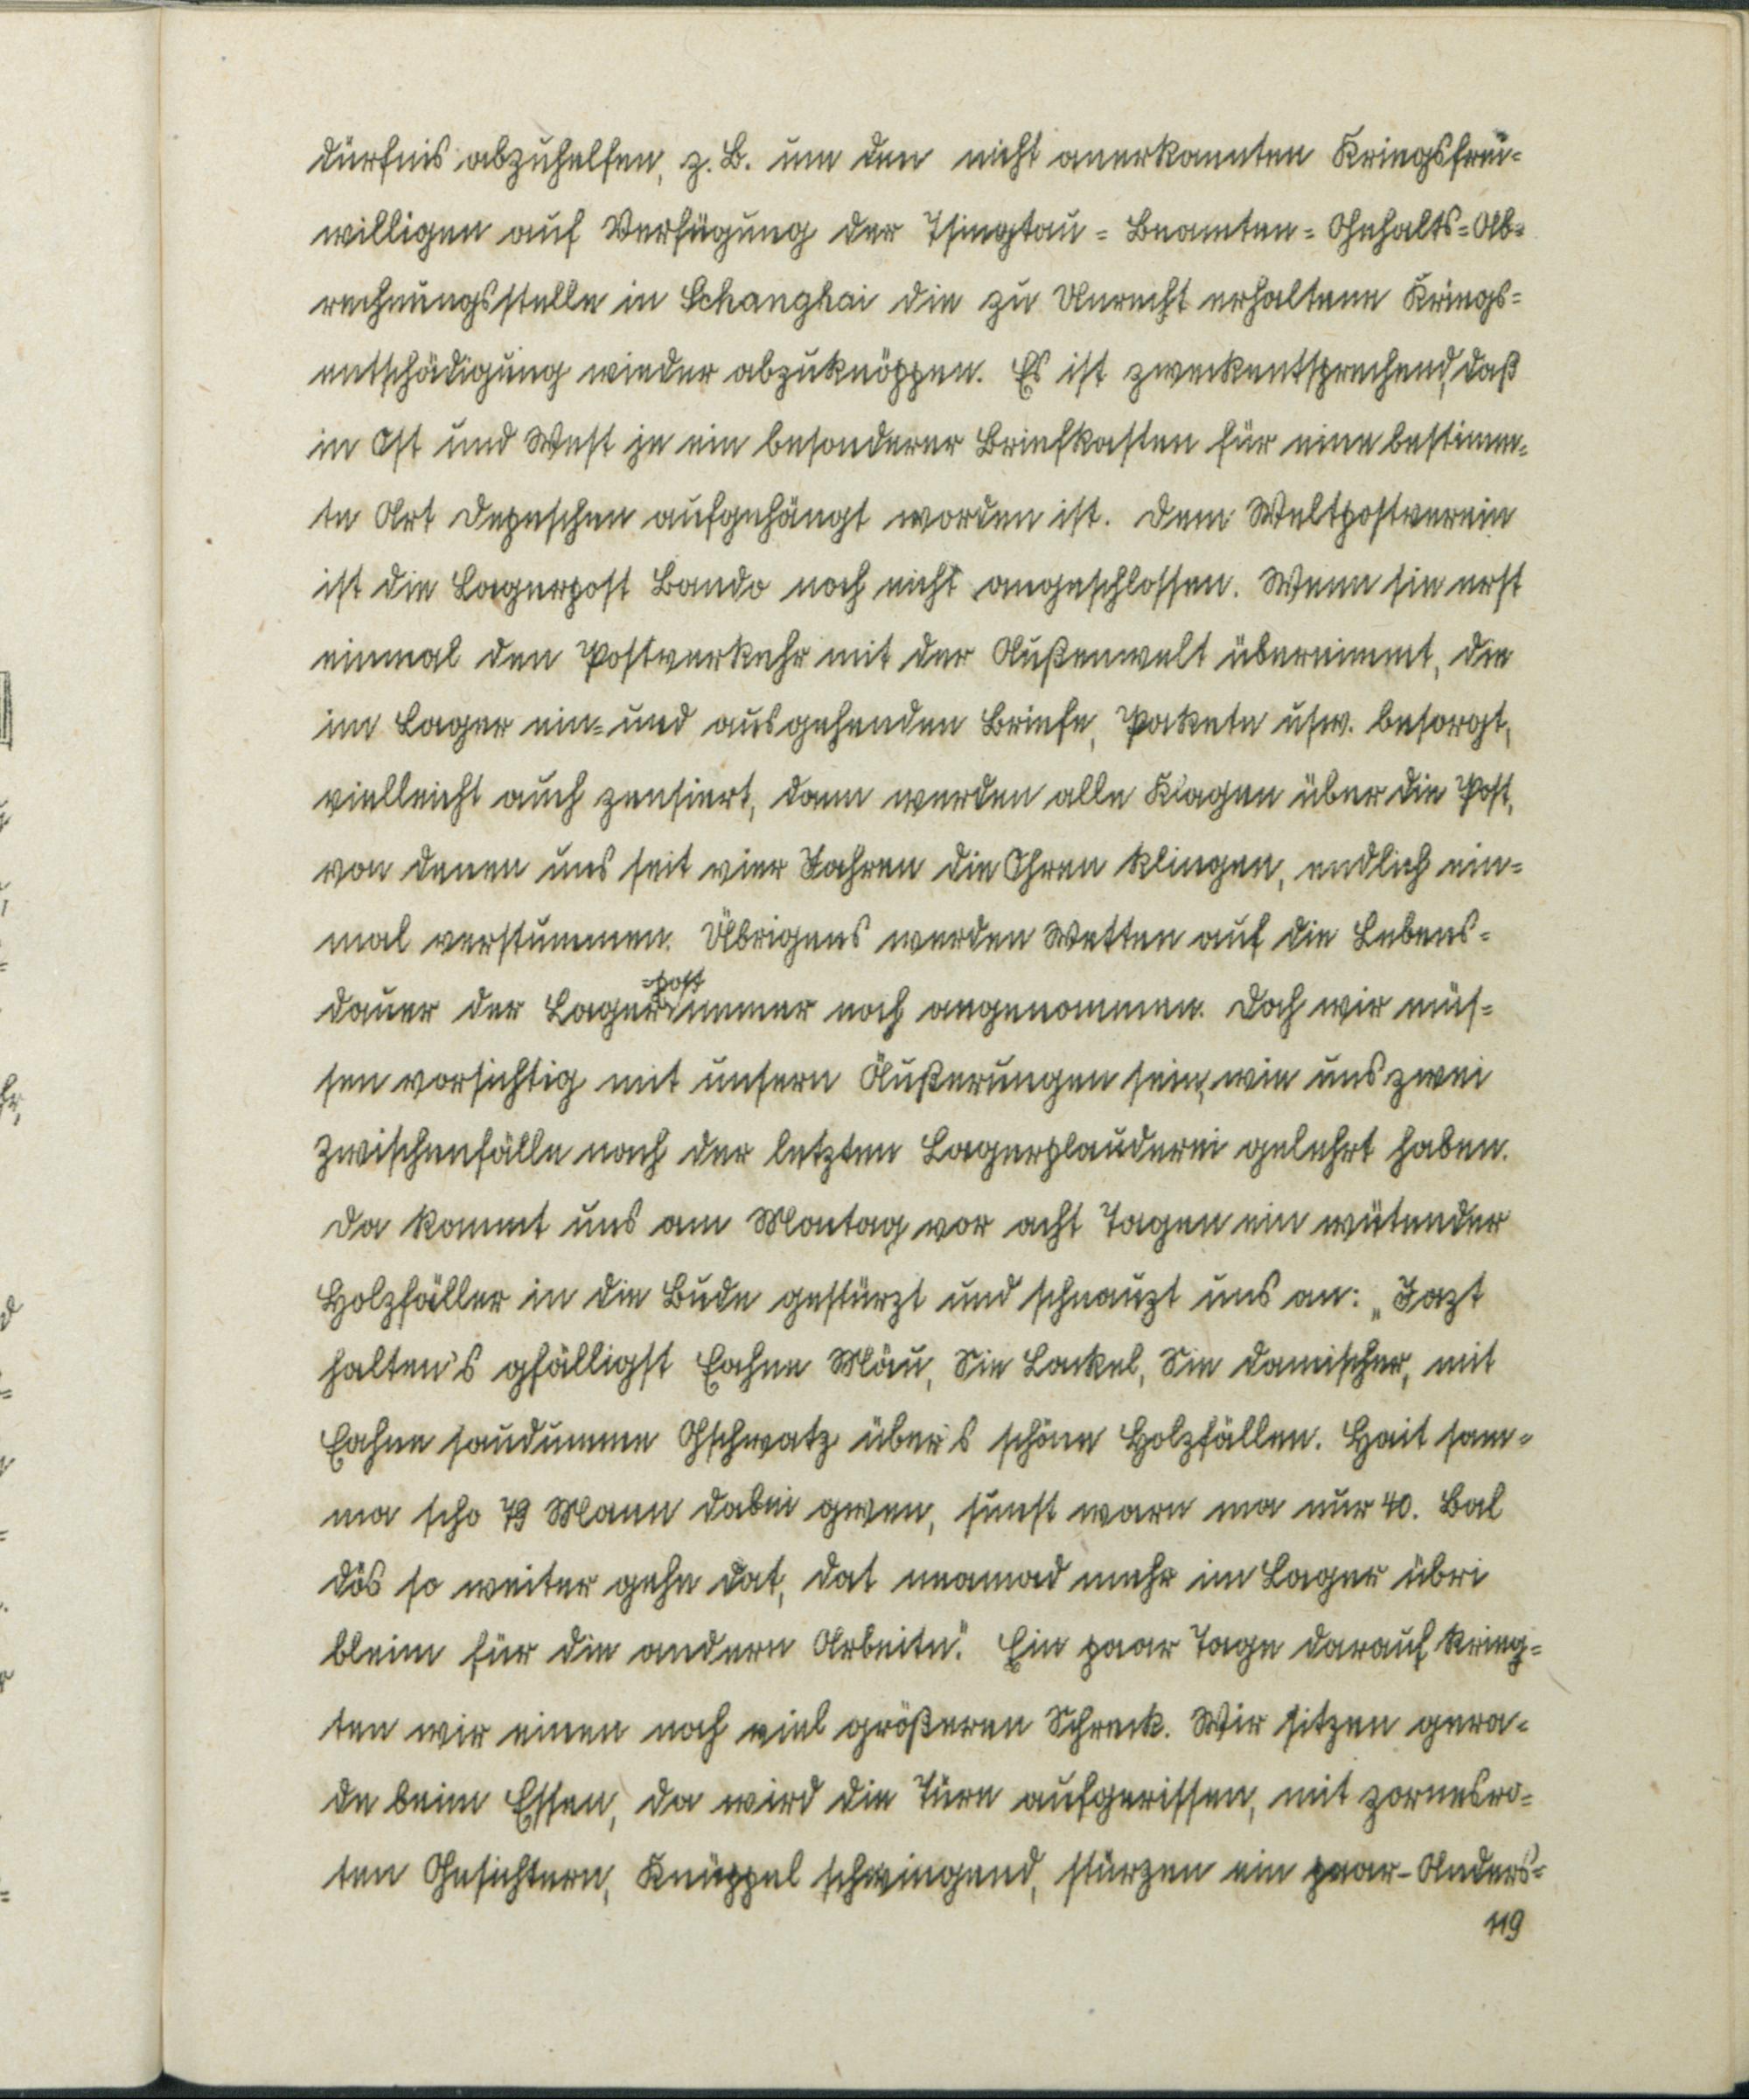 dürfnis abzuhelfen, z. B. um den nicht anerkannten Kriegsfrei=
willigen auf Verfügung der Tsingtau = Beamten = Gehalts = Ab=
rechnungsstelle in Schanghai die zu Unrecht erhaltene Kriegs=
entschädigung wieder abzuknöppen. Es ist zweckentsprechend, daß
in Ost und West je ein besonderer Briefkasten für eine bestimm=
te Art Depeschen aufgehängt worden ist. Dem Weltpostverein
ist die Lagerpost Bando noch nicht angeschlossen. Wenn sie erst
einmal den Postverkehr mit der Außenwelt übernimmt, die
im Lager ein= und ausgehenden Briefe, Pakete usw. besorgt,
vielleicht auch zensiert, dann werden alle Klagen über die Post,
von denen uns seit vier Jahren die Ohren klingen, endlich ein=
mal verstummen. Übrigens werden Wetten auf die Lebens=
dauer der Lager=post immer noch angenommen. Doch wir müs=
sen vorsichtig mit unsern Äußerungen sein, wie uns zwei
Zwischenfälle nach der letzten Lagerplauderei gelehrt haben.
Da kommt uns am Montag vor acht Tagen ein wütender
Holzfäller in die Bude gestürzt und schnauzt uns an: „Jazt
halten's gfälligst Eahne Mäu, Sie Lackel, Sie damischer, mit
Eahne saudumme Gschwatz über's schöne Holzfällen. Hait sam=
ma scho 79 Mann dabei gwen, sunst warn ma nur 40. Bal
dös so weiter gehn dat, dat neamad mehr im Lager übri
bleim für die andern Arbeite." Ein paar Tage darauf krieg=
ten wir einen noch viel größeren Schreck. Wir sitzen gera=
de beim Essen, da wird die Türe aufgerissen, mit zornesro=
ten Gesichtern, Knüppel schwingend, stürzen ein paar - Anders=
119